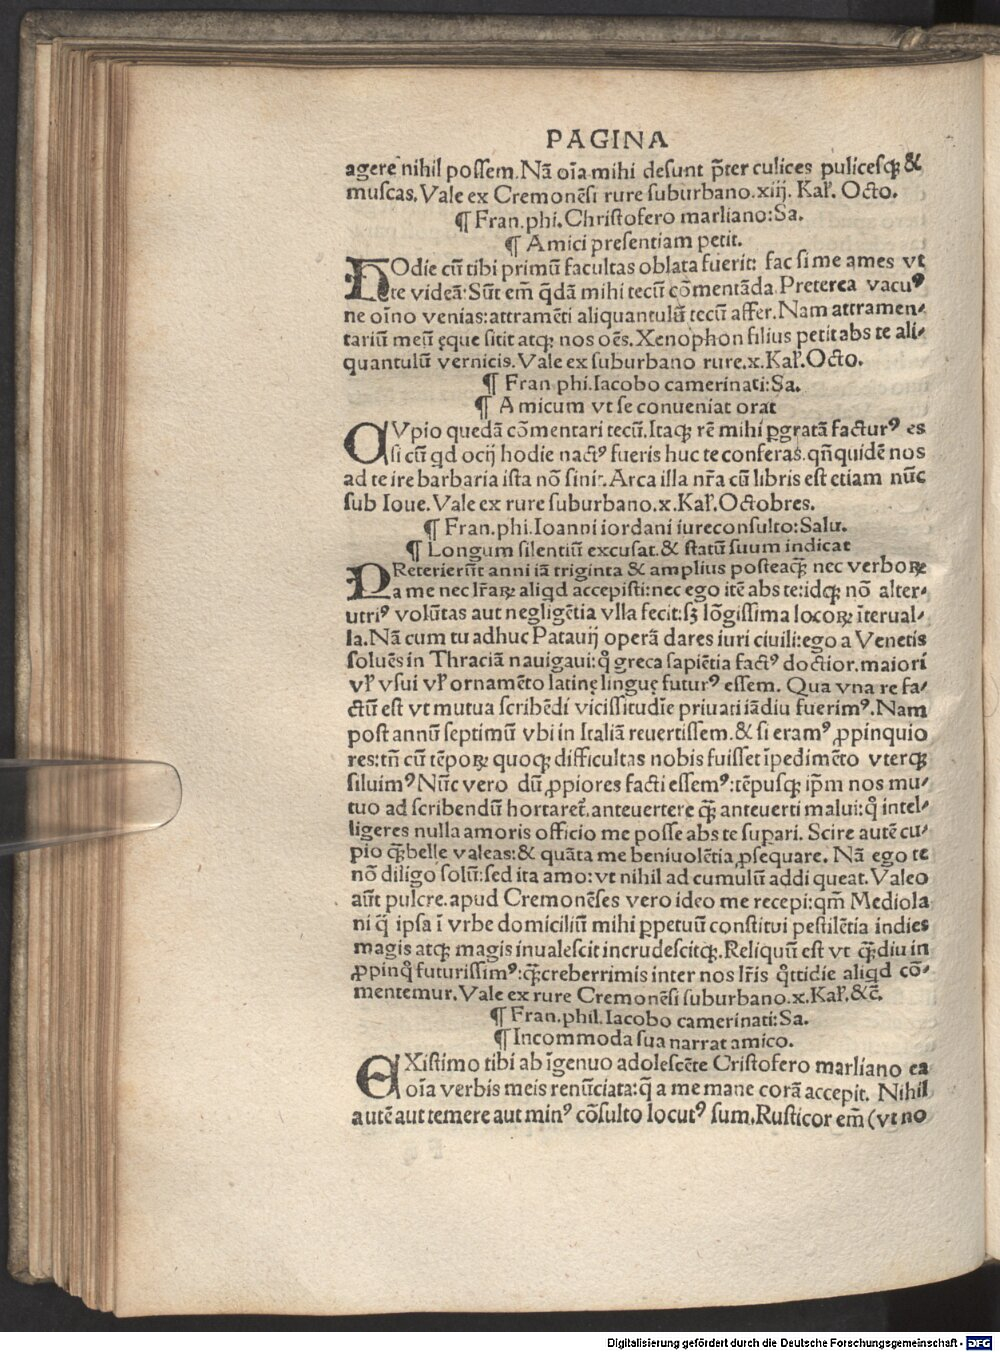 PAGINA
agere nihil possem. Nã oĩa mihi desunt p̃ter culices pulicesqꝫ &
muscas. Vale ex Cremonẽsi rure suburbano. xiij. Kal̃. Octo.
¶ Fran. phi. Christofero marliano: Sa.
¶ Amici presentiam petit.
HOdie cũ tibi primũ facultas oblata fuerit: fac si me ames vt
te videã: Sũt em̃ q̃dã mihi tecũ cõmentãda. Preterea vacuꝰ
ne oĩno venias: attramẽti aliquantulũ tecũ affer. Nam attramen⸗
tariũ meũ ęque sitit atqꝫ nos oẽs. Xenophon filius petit abs te ali⸗
quantulũ vernicis. Vale ex suburbano rure. x. Kal̃. Octo.
¶ Fran phi. Iacobo camerinati: Sa.
¶ Amicum vt se conueniat orat
CVpio quedã cõmentari tecũ. Itaqꝫ rẽ mihi ꝑgratã facturꝰ es
si cũ qd ocij hodie nactꝰ fueris huc te conferas. qñquidẽ nos
ad te ire barbaria ista nõ sinit. Arca illa nr̃a cũ libris est etiam nũc
sub Ioue. Vale ex rure suburbano. x. Kal̃. Octobres.
¶ Fran. phi. Ioanni iordani iureconsulto: Salu.
¶ Longum silentiũ excusat. & statũ suum indicat
PReterierũt anni iã triginta & amplius posteaqꝫ̃ nec verboꝝ
a me nec lr̃aꝝ aliqd accepisti: nec ego itẽ abs te: idqꝫ nõ alter⸗
utriꝰ volũtas aut negligẽtia vlla fecit: sꝫ lõgissima locoꝝ ĩterual⸗
la. Nã cum tu adhuc Patauij operã dares iuri ciuili: ego a Venetis
soluẽs in Thraciã nauigaui: q̊ greca sapiẽtia factꝰ doctior. maiori
vl̃ vsui vl̃ ornamẽto latinę linguę futurꝰ essem. Qua vna re fa⸗
ctũ est vt mutua scribẽdi vicissitudĩe priuati iãdiu fuerimꝰ. Nam
post annũ septimũ vbi in Italiã reuertissem. & si eramꝰ ꝓpinquio
res: tñ cũ tẽpoꝝ quoqꝫ difficultas nobis fuisset ĩpedimẽto vterqꝫ
siluimꝰ Nũc vero dũ ꝓpiores facti essemꝰ: tẽpusqꝫ ip̃m nos mu⸗
tuo ad scribendũ hortaret̃. anteuertere qꝫ̃ anteuerti malui: q̊ intel⸗
ligeres nulla amoris officio me posse abs te suꝑari. Scire autẽ cu⸗
pio qꝫ̃ belle valeas: & quãta me beniuolẽtia ꝓsequare. Nã ego te
nõ diligo solũ: sed ita amo: vt nihil ad cumulũ addi queat. Valeo
aũt pulcre. apud Cremonẽses vero ideo me recepi: qm̃ Mediola
ni q̃ ipsa ĩ vrbe domiciliũ mihi ꝑpetuũ constitui pestilẽtia indies
magis atqꝫ magis inualescit incrudescitqꝫ. Reliquũ est vt qꝫ̃diu in
ꝓpinq̊ futurissimꝰ: qꝫ̃creberrimis inter nos lr̃is q̊ttidie aliqd cõ⸗
mentemur. Vale ex rure Cremonẽsi suburbano. x. Kal̃. &c̃.
¶ Fran. phil. Iacobo camerinati: Sa.
¶ Incommoda sua narrat amico.
EXistimo tibi ab ĩgenuo adolescẽte Cristofero marliano ea
oĩa verbis meis renũciata: q̃ a me mane corã accepit. Nihil
autẽ aut temere aut minꝰ cõsulto locutꝰ sum. Rusticor em̃ (vt no
Digitalisierung gefördert durch die Deutsche Forschungsgemeinschaft - DFG